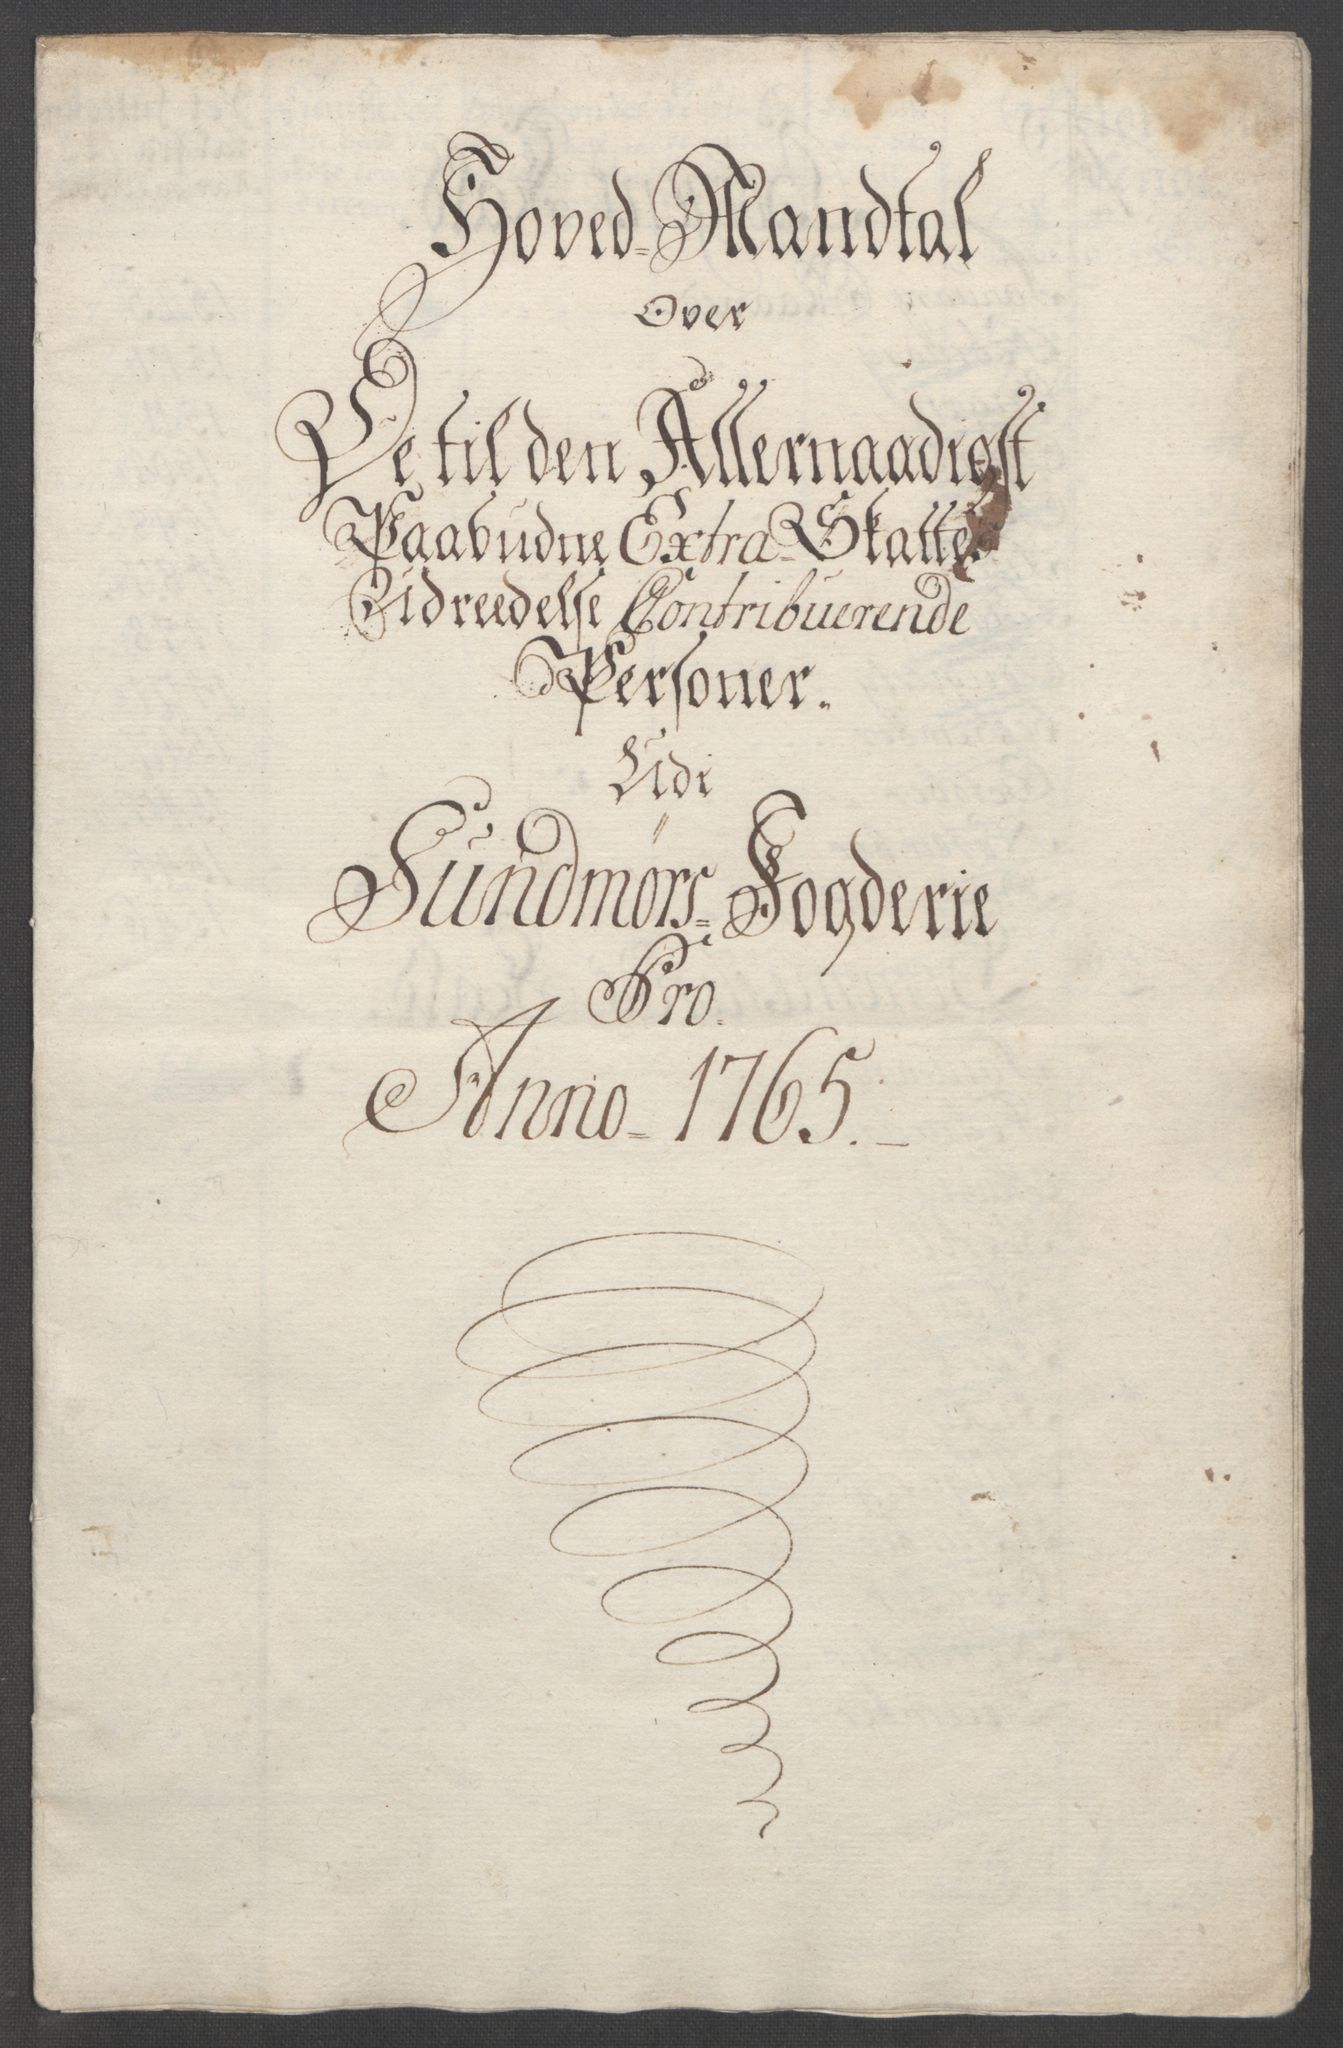 Hoved-Mandtal
Over
De til den Allernaadigst
Paabudne Extra-Skattes
Udreedelse Contribuerende
Personer.
Udi
Sundmörs-Fogderie
Pro.
Anno-1765.